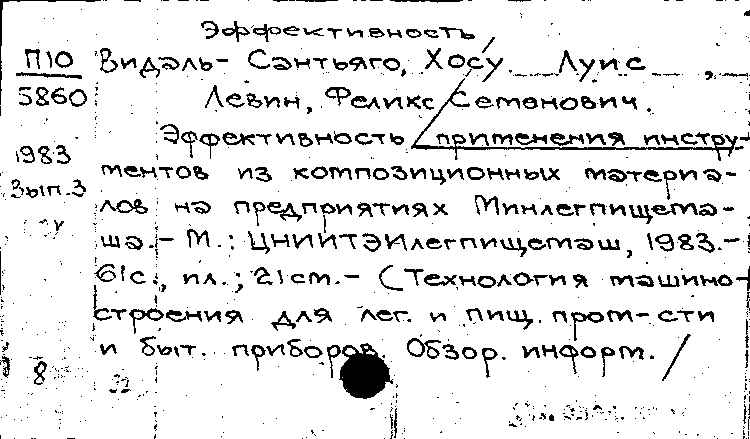 Эффективность
П10 Видаль-Сантьяго, Хосу Луис ,
5860 Левин, Феликс Семенович.
Эффективность применения инстру-
1983 ментов из композиционных материа-
Вып.3 лов на предприятиях Минлегпищема-
ша.- М.: ЦНИИТЭИлегпищемаш, 1983.-
61с., ил.; 21см.- (Технология машино-
строения для лег. и пищ. пром-сти
и быт. приборов. Обзор. информ. /
8 32